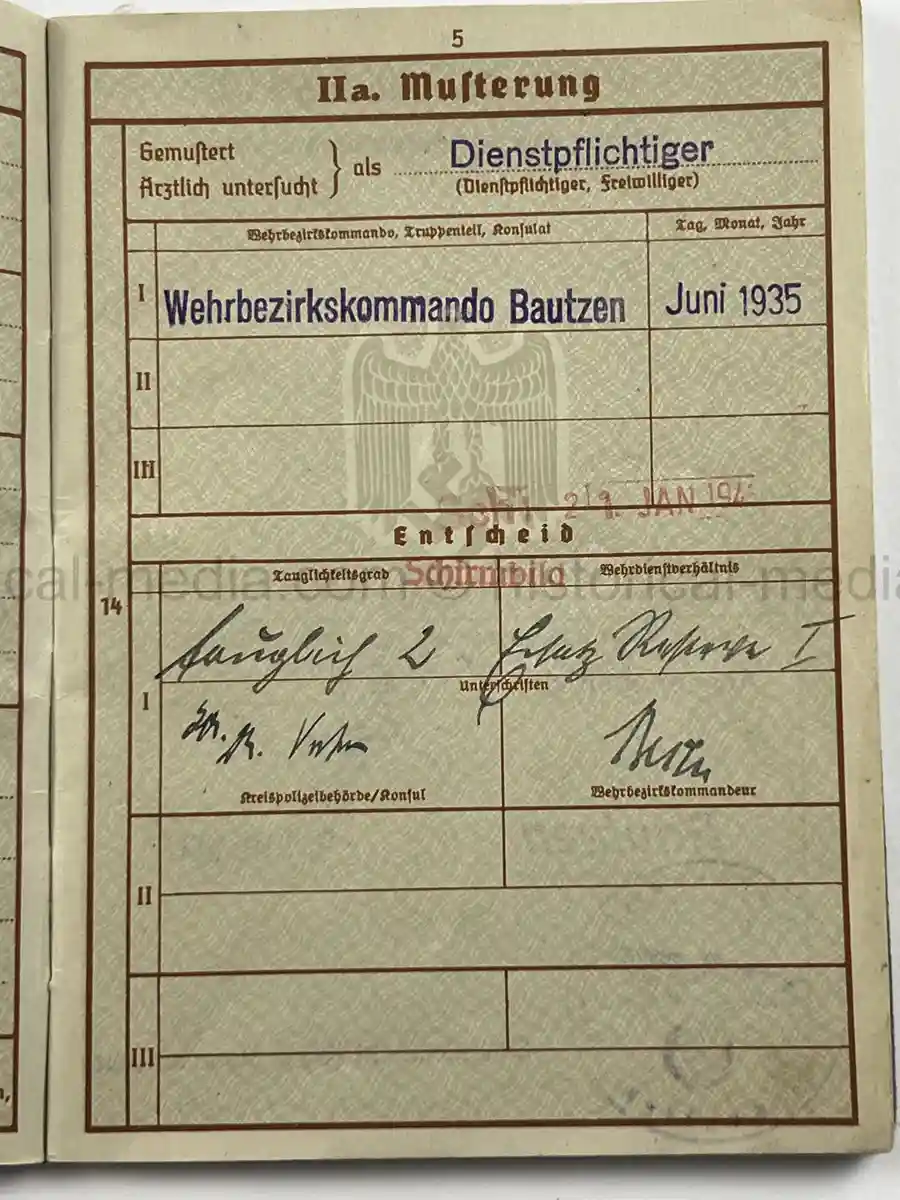 5
IIa. Musterung
Gemustert
Ärztlich untersucht } als Dienstpflichtiger
(Dienstpflichtiger, Freiwilliger)
Wehrbezirkskommando, Truppenteil, Konsulat Tag, Monat, Jahr
I Wehrbezirkskommando Bautzen Juni 1935
II
III
JAN 194
Entscheid
Tauglichkeitsgrad Schirmbild Wehrdienstverhältnis
cal-media.com © historical-media
14
tauglich 2 Ersatz Reserve I
Unterschriften
I
Kreispolizeibehörde/Konsul Wehrbezirkskommandeur
II
III